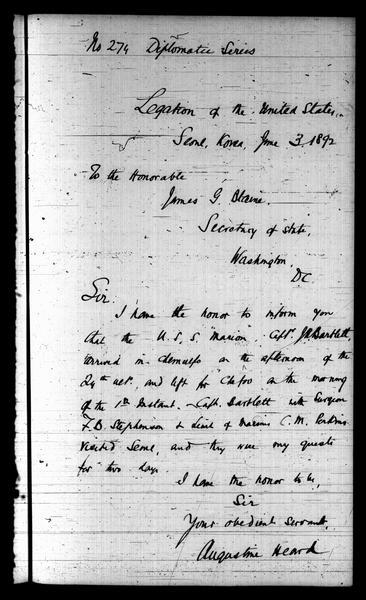 No 274 Diplomatic Series
Legation of the United States.
Seoul, Korea, June 3, 1892
To the Honorable
James G. Blaine,
Secretary of State,
Washington,
DC
Sir,
I have the honor to inform you
that the U. S. S. "Marion", Capt. J.R. Bartlett,
arrived in Chemulpo on the afternoon of the
29th ult. and left for Chefoo on the morning
of the 1st Instant. - Capt. Bartlett with Surgeon
F. D. Stephenson & Lieut of Marines C. M. Perkins
visited Seoul, and they were my guests
for two days.
I have the honor to be,
Sir
Your obedient servant,
Augustine Heard